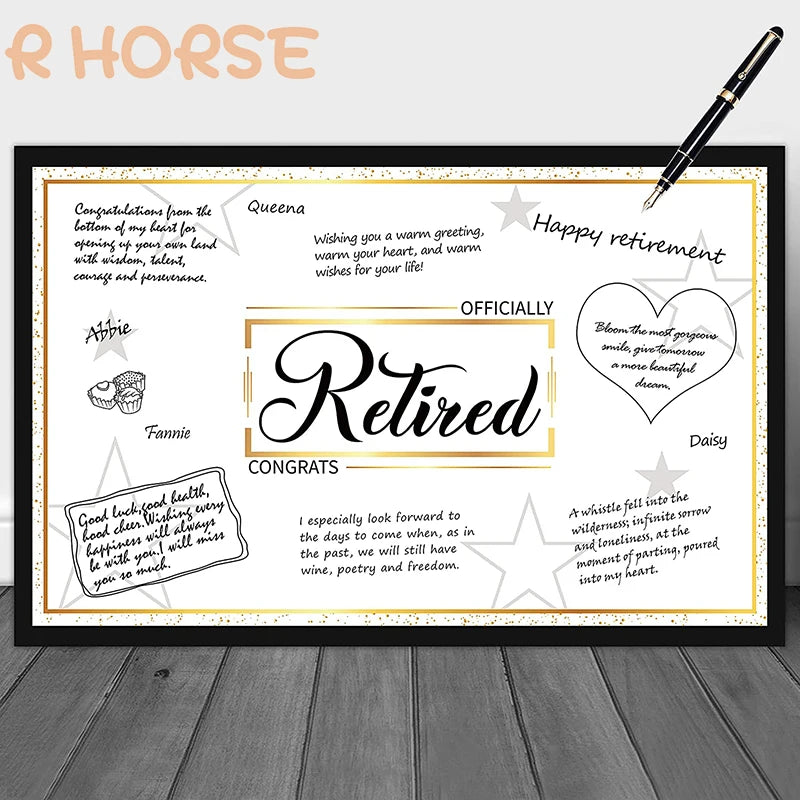 R HORSE
Congratulations from the
bottom of my heart for
opening up your own land
with wisdom, talent,
courage and perseverance.
Queena
Wishing you a warm greeting,
warm your heart, and warm
wishes for your life!
Happy retirement
OFFICIALLY
Retired
CONGRATS
Abbie
Fannie
Bloom the most gorgeous
smile, give tomorrow
a more beautiful
dream.
Daisy
Good luck,good health,
hood cheer.Wishing every
happiness will always
be with you.I will miss
you so much.
I especially look forward to
the days to come when, as in
the past, we will still have
wine, poetry and freedom.
A whistle fell into the
wilderness; infinite sorrow
and loneliness, at the
moment of parting, poured
into my heart.